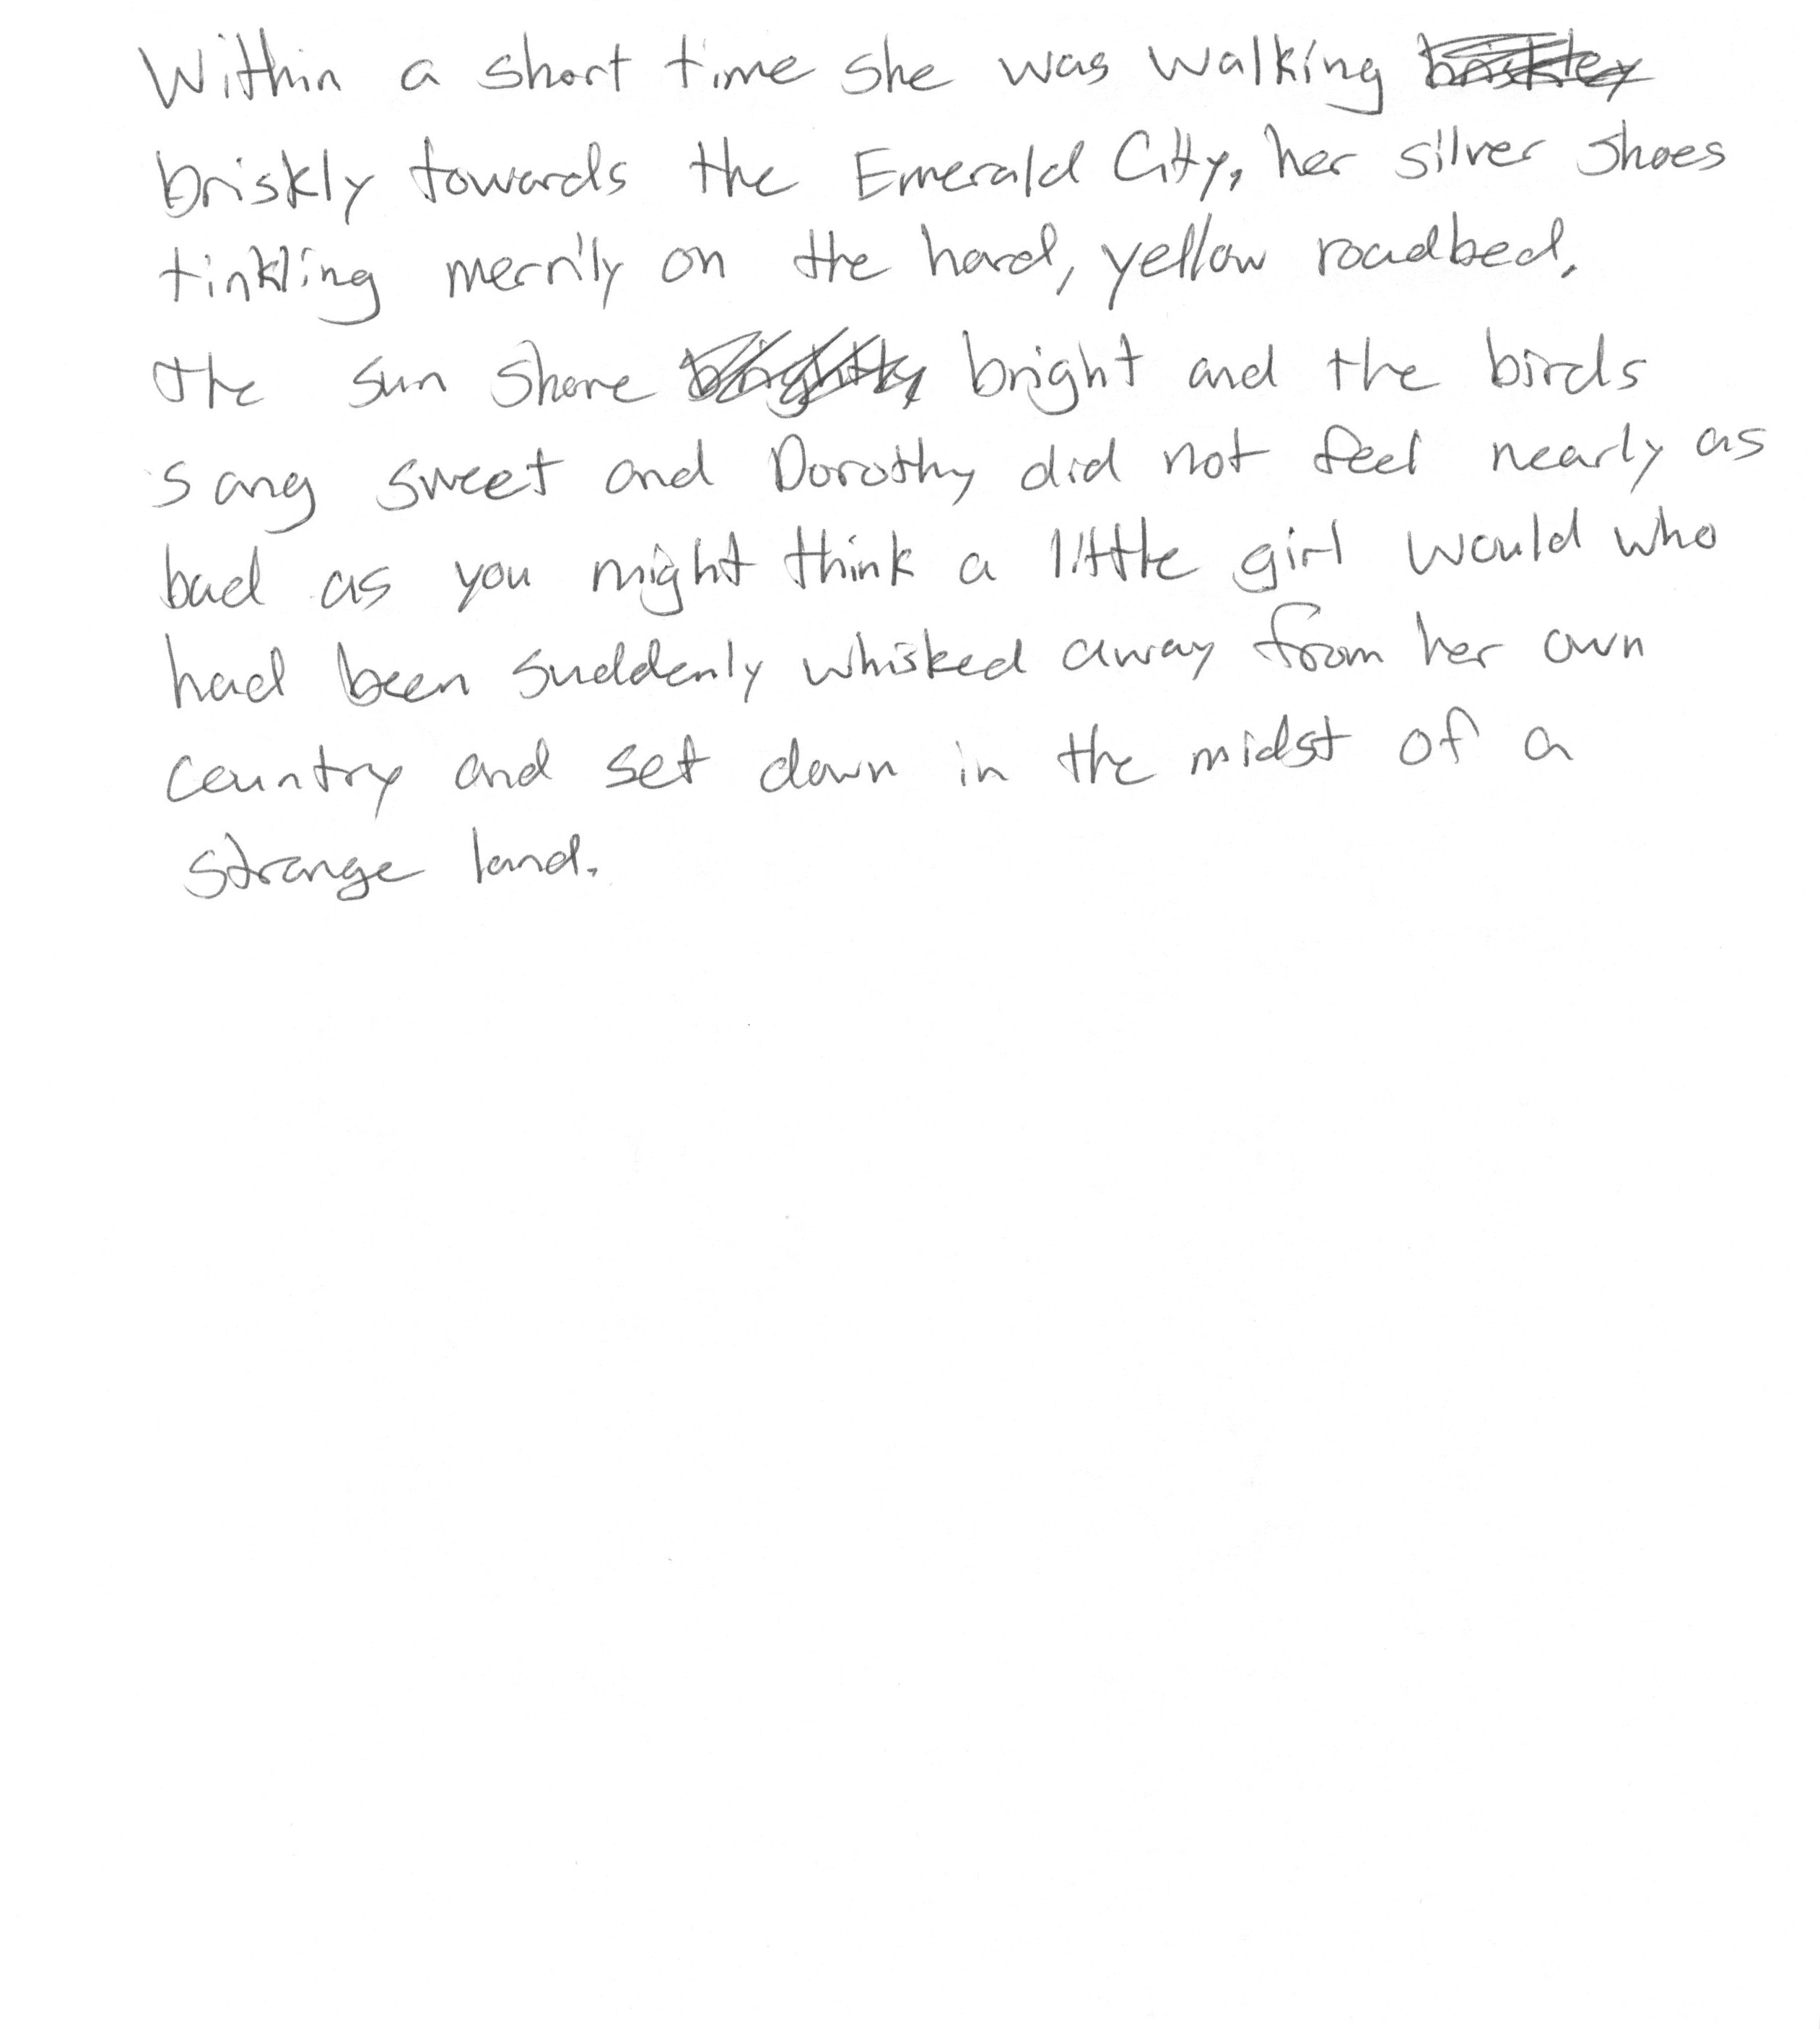 Within a short time she was walking
briskly towards the Emerald City, her silver shoes
tinkling merrily on the hard, yellow roadbed.
the sun shone bright and the birds
sang sweet and Dorothy did not feel nearly as
bad as you might think a little girl would who
had been suddenly whisked away from her own
country and set down in the midst of a
strange land.